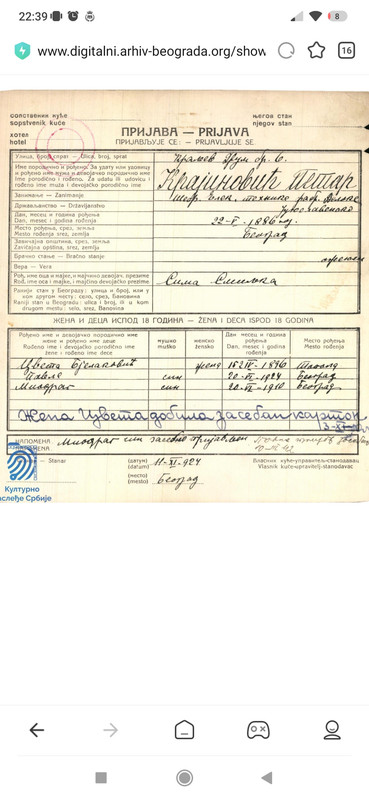 22:39
8
www.digitalni.arhiv-beograda.org/show
16
сопственик куће
sopstvenik kuće
његов стан
njegov stan
хотел
hotel
ПРИЈАВА — PRIJAVA
ПРИЈАВЉУЈЕ СЕ: — PRIJAVLJUJE SE:
Улица, број, спрат — Ulica, broj, sprat
Име породично и рођено. За удату или удовицу
и рођено име мужа и девојачко породично име
Ime porodično i rođeno. Za udatu ili udovicu i
rođeno ime muža i devojačko porodično ime
Крајиновић Петар
Занимање — Zanimanje
Држављанство — Državljanstvo
Југославенско
Дан, месец и година рођења
Dan, mesec i godina rođenja
22-V-1886
Место рођења, срез, земља
Mesto rođenja, srez, zemlja
Београд
Завичајна општина, срез, земља
Zavičajna opština, srez, zemlja
Брачно стање — Bračno stanje
ожењен
Вера — Vera
Рођ. име оца и мајке, и мајчино девојач. презиме
Rođ. ime oca i majke, i majčino devojačko prezime
Сима
Ранији стан у Београду: улица и број, или у
ком другом месту: село, срез, Бановина
Raniji stan u Beogradu: ulica i broj, ili u kom
drugom mestu: selo, srez, Banovina
ЖЕНА И ДЕЦА ИСПОД 18 ГОДИНА — ŽENA I DECA ISPOD 18 GODINA
Рођено име и девојачко породично име
жене и рођено име деце
Rođeno ime i devojačko porodično ime
žene i rođeno ime dece
мушко
muško
женско
žensko
Дан, месец и година
рођења
Dan, mesec i godina
rođenja
Место рођења
Mesto rođenja
Цвета Бјелаковић жена 1896
Павле син 20-VI-1924 Београд
Миодраг син 20-VI-1910 Београд
Жена Цвета добила засебан картон
НАПОМЕНА
Миодраг син засебно пријављен
— Stanar
(датум)
(datum)
11-XI-924
(место)
(mesto)
Београд
Власник куће-управитељ-станодавац
Vlasnik kuće-upravitelj-stanodavac
Културно
наслеђе Србије